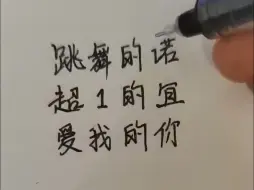 跳舞的诺
超1的宜
爱我的你